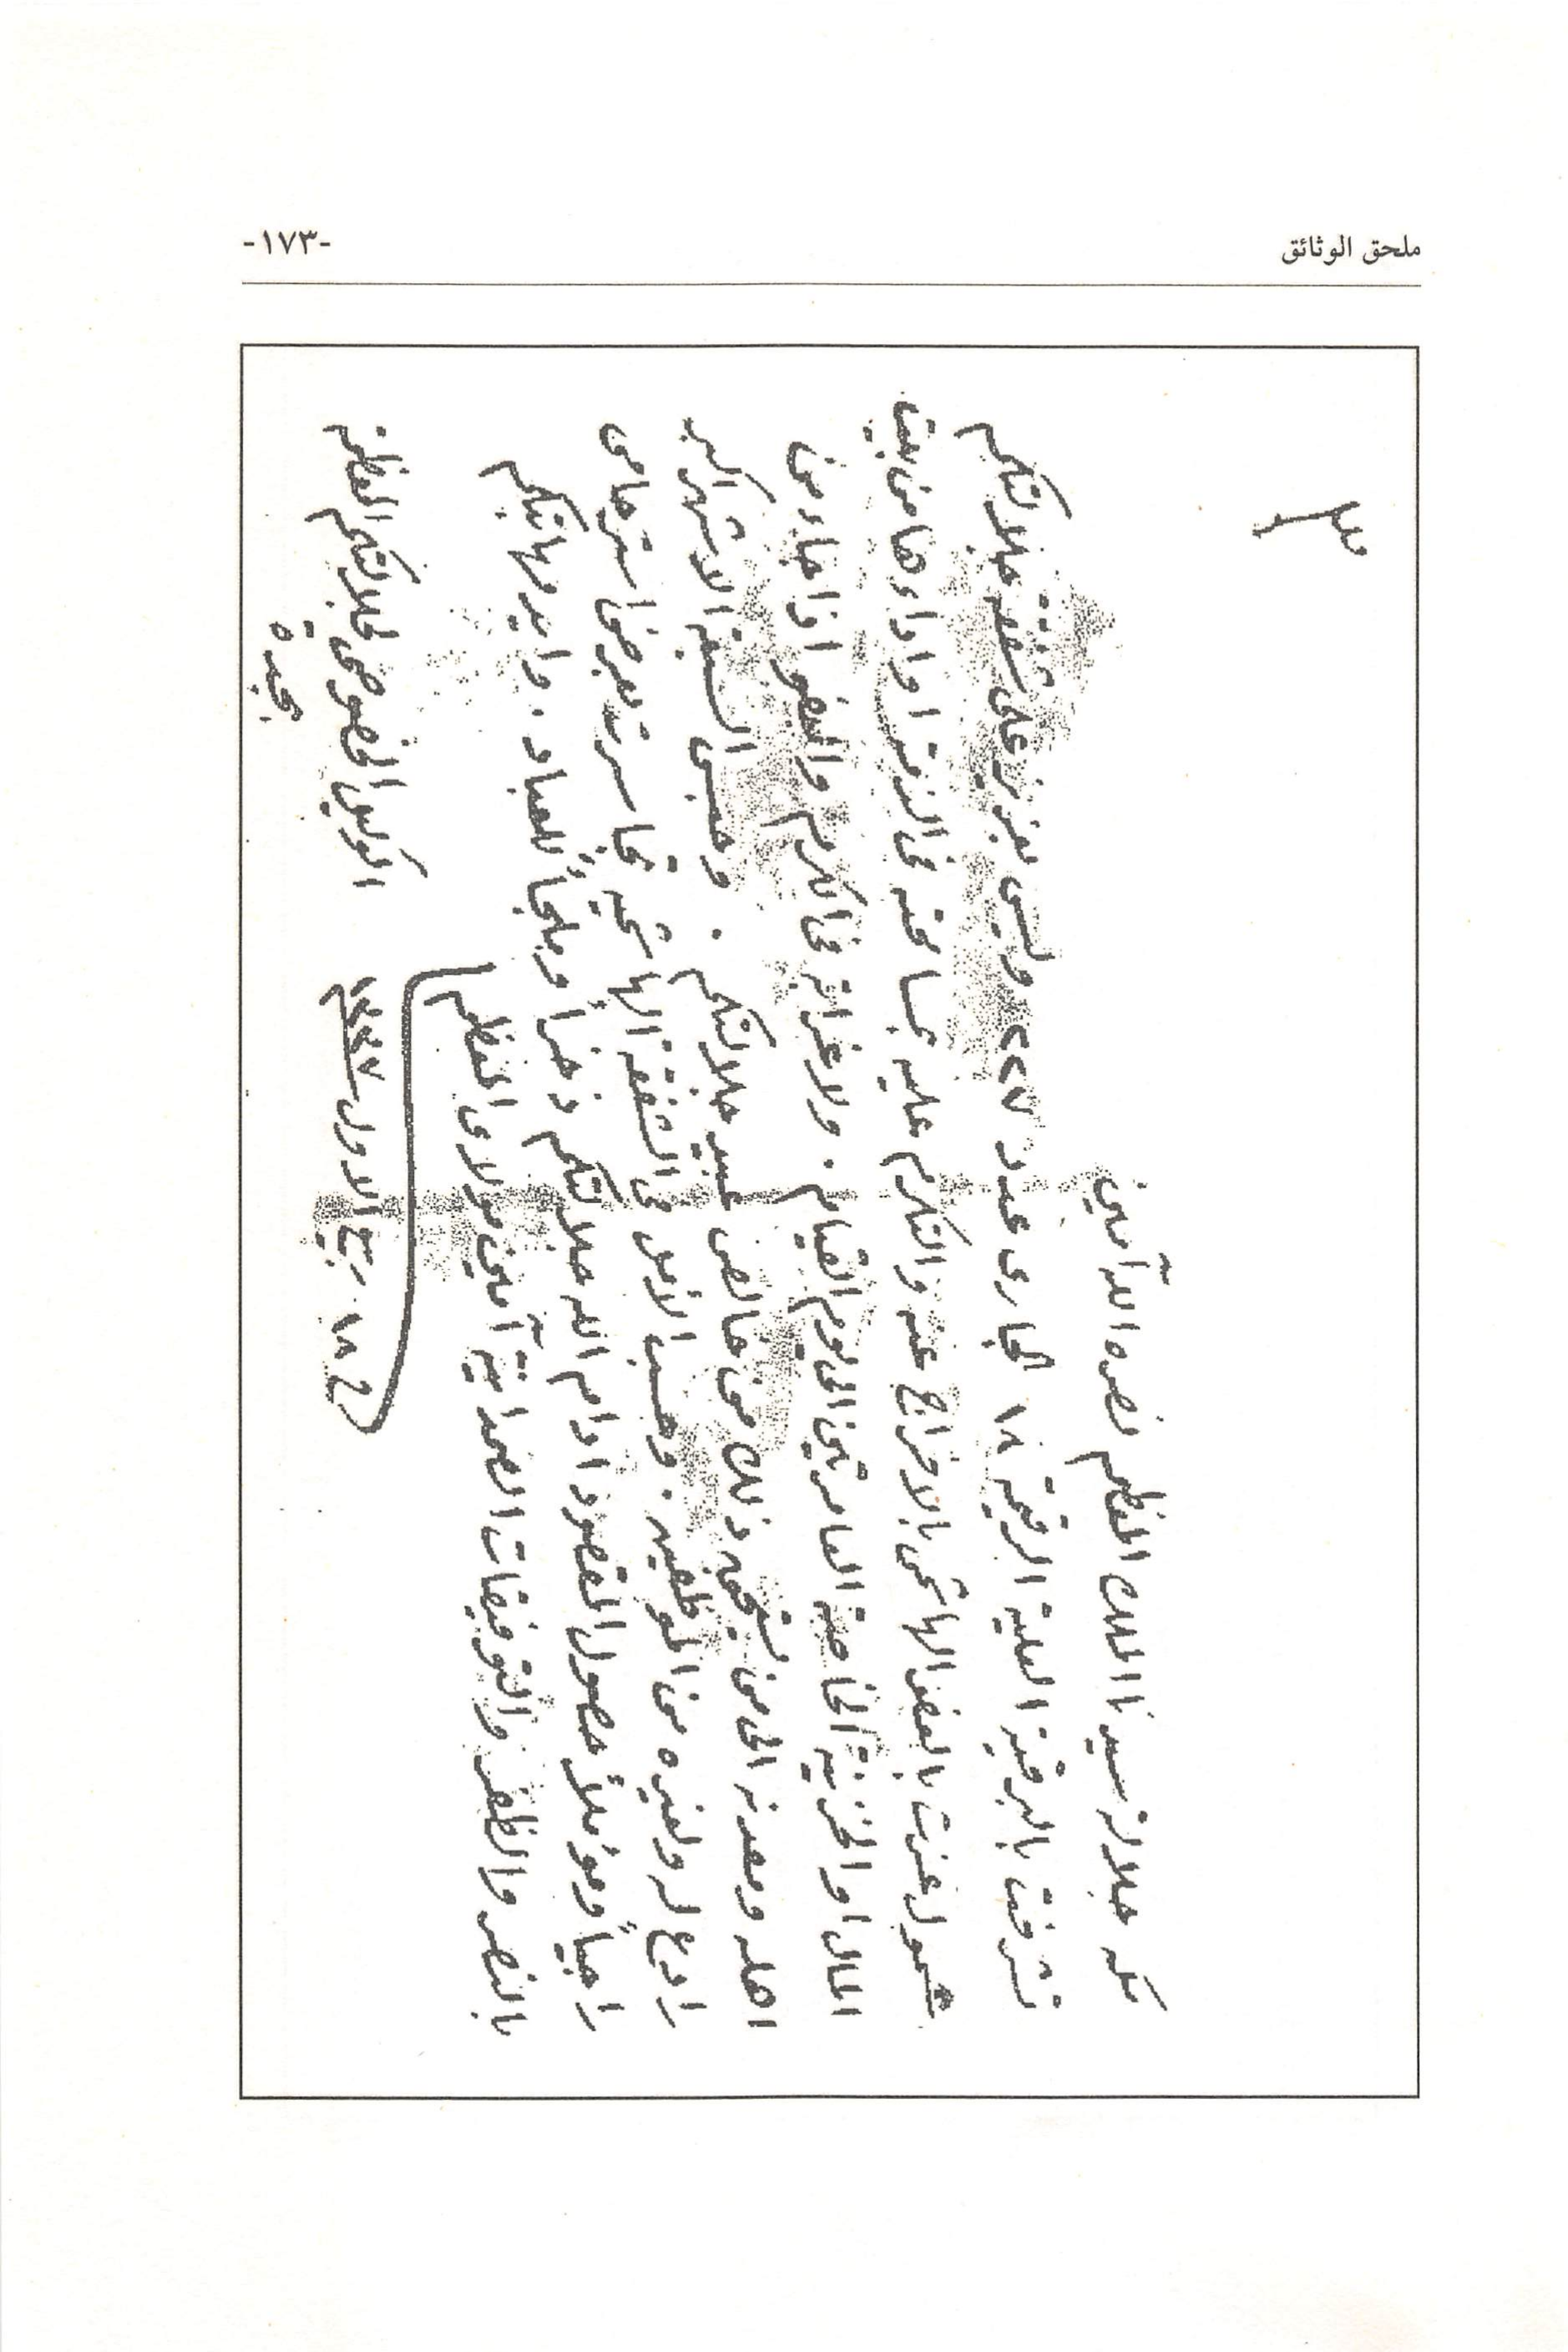 ملحق الوثائق
-١٧٣-
مكه جلالة سيدنا الملك المعظم نصره الله آمين
تشرفت بالبرقية العلية الرقيمة ١٨ الجارى عدد ٢٢٧ وليس بعزيز على شفقة جلالتكم
شمول عزت بالعفو الهاشمى بالافراج عنه والتكرم عليه بمسامحته فى الذمة اواداءها من بيت
المال او الخزينة الخاصة العامرتين الى يوم القيام . ولا غرابة فى الكرم والعفو اذا جاء من
اهله ومعدنه الى من يستحق ذلك من خالص عبيد جلالتكم . وحبس السبعة الاشهر اكبر
رادع له ولغيره من الموظفين . وحسب الأمل فى الشفقة الهاشمية تجاسرت بعرض استرحامى
راجياً ومؤملاً حصول المقصود ادام الله جلالتكم ذخراً وملجأً للعباد . وايدمهابتكم
بالنصر والظفر والتوفيقات الصمدانية آمين مولاى المعظم
فى ١٨ ربيع الاول ١٣٣٧
الوكيل المخصوص لجلالتكم المعظمه
بجده